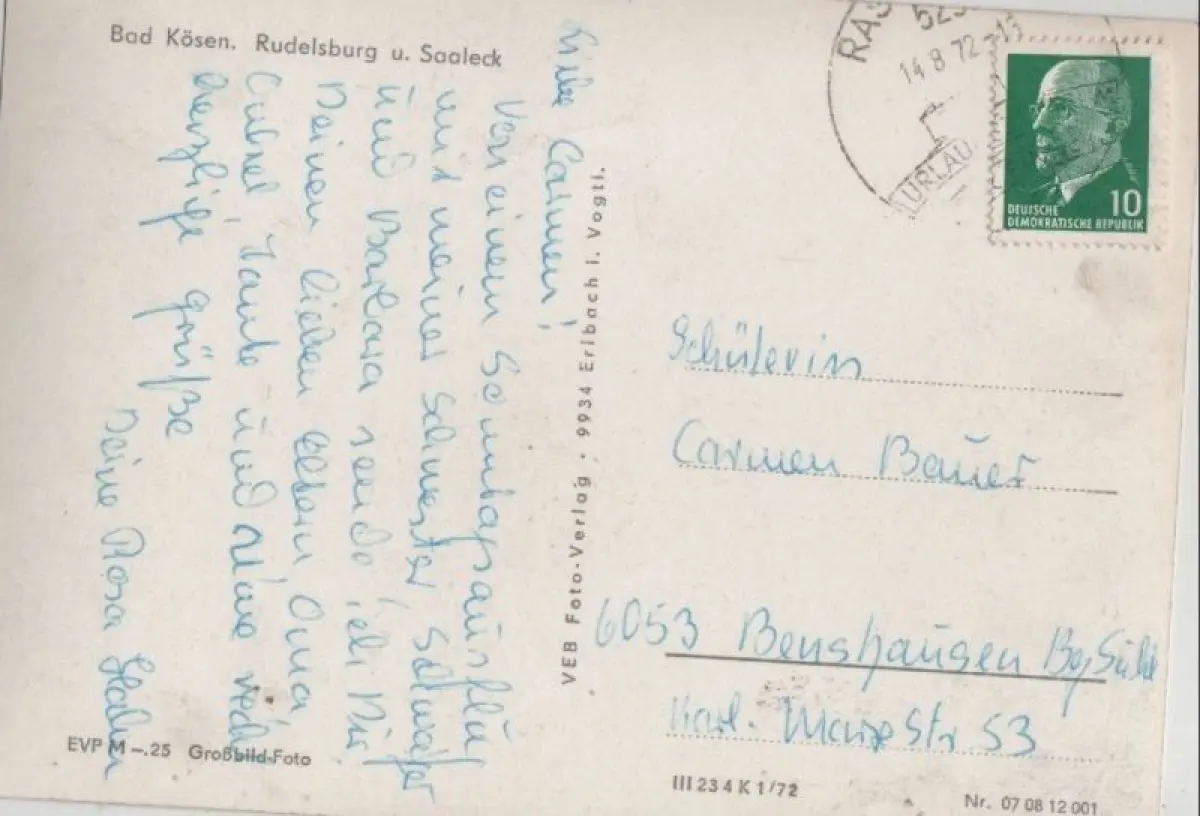 Bad Kösen. Rudelsburg u. Saaleck
Liebe Carmen!
Von einem Sonntagsausflug
mit meiner Schwester, Schwager
und Barbara sende ich Dir,
Deinen lieben Eltern, Oma,
Onkel, Tante und Aline recht
herzlige grüße
Deine Rosa
EVP M –.25 Großbild-Foto
VEB Foto-Verlag · 9934 Erlbach i. Vogtl.
RAS
14.8.72-15
URLAU
10
DEUTSCHE
DEMOKRATISCHE REPUBLIK
Schülerin
Carmen Bauer
6053 Benshausen Bg. Suhl
Karl-Marx Str 53
III 23 4 K 1/72
Nr. 07 08 12 001